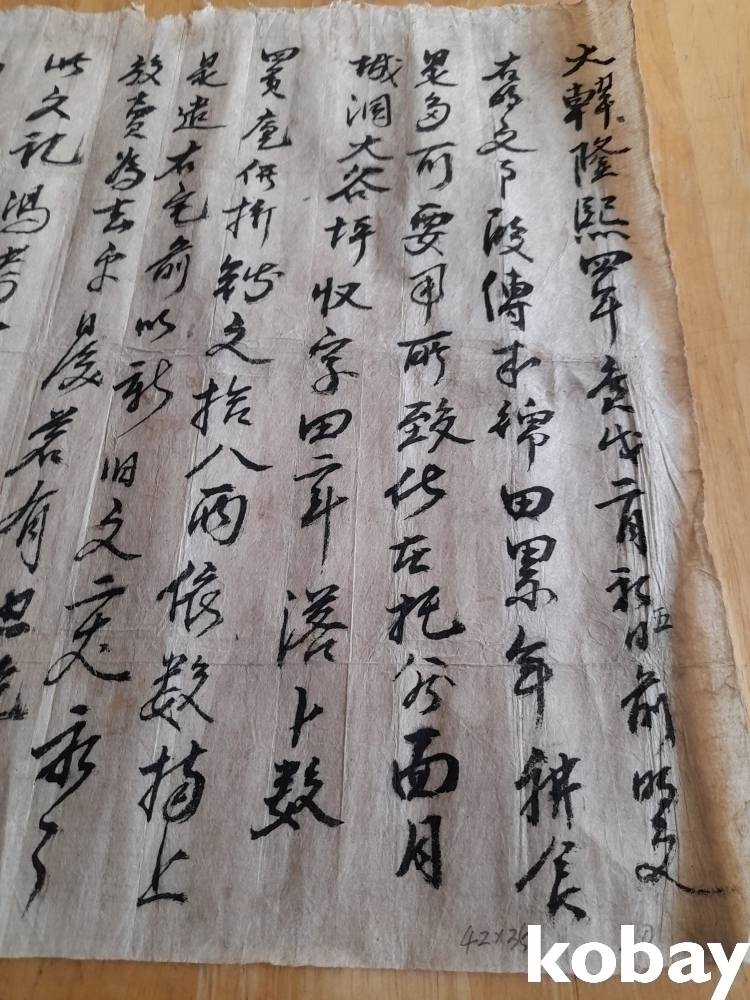 大韓隆熙四年庚戌二月初五日前明文
右明文事段傳來綿田累年耕食
是多可要用所致伏在托谷面月
城洞大谷坪收字田二斗落卜數
四負庫価折錢文拾八兩依數捧上
是遣右宅前以新旧文二丈永々
放賣為去乎日後若有
此文記憑考
42×35
①
kobay